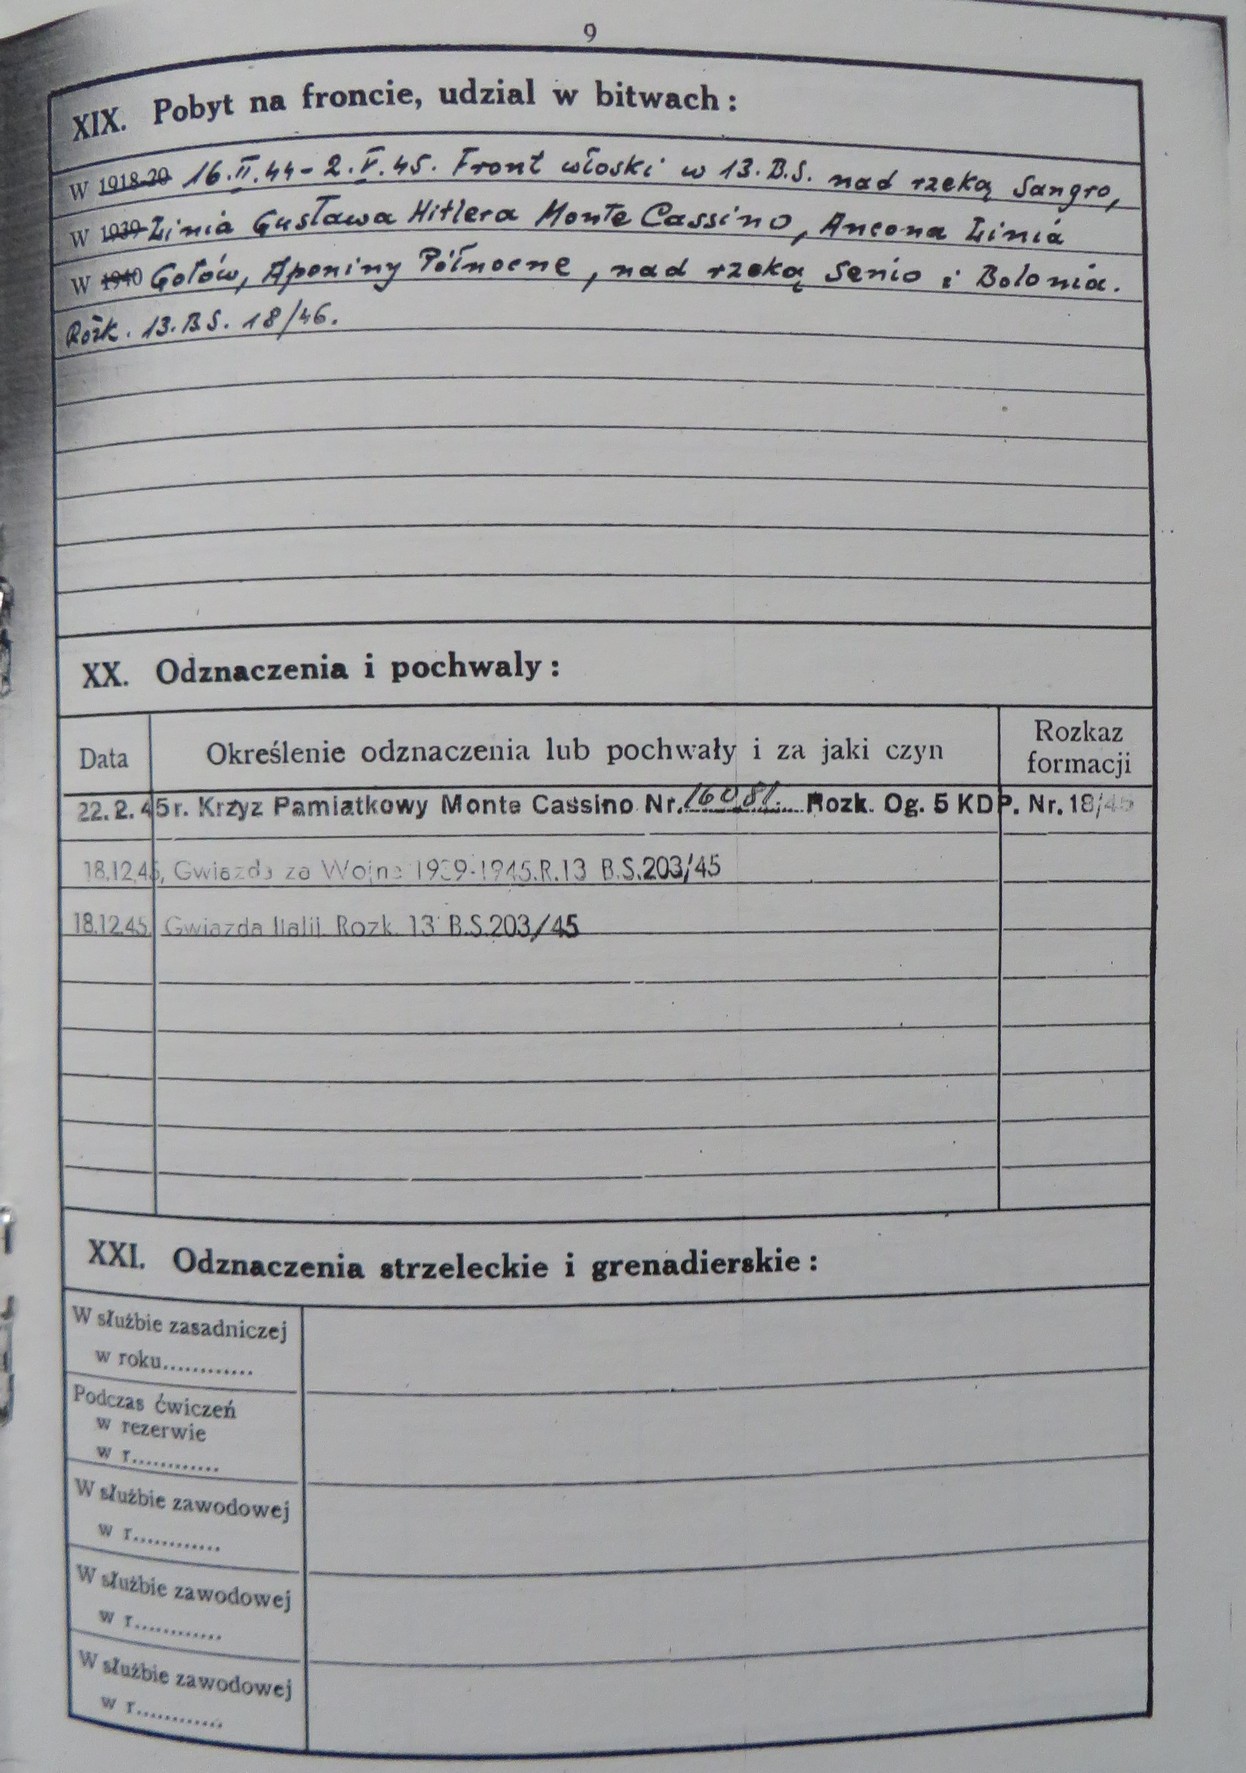 9
XIX. Pobyt na froncie, udzial w bitwach :
W 1918-20 16.II.44 - 2.V.45. Front włoski w 13.B.S. nad rzeką Sangro,
W 1939 Linia Gustawa Hitlera Monte Cassino, Ancona Linia
W 1940 Gotów, Apeniny Północne, nad rzeką Senio i Bolonia.
Rozk. 13.B.S. 18/46.
XX. Odznaczenia i pochwaly :
Data Określenie odznaczenia lub pochwały i za jaki czyn Rozkaz formacji
22.2.45 r. Krzyz Pamiatkowy Monte Cassino Nr. 16081 Rozk. Og. 5 KDP. Nr. 18/45
18.12.45, Gwiazda za Wojnę 1939-1945.R.13 B.S.203/45
18.12.45. Gwiazda Italii Rozk. 13 B.S.203/45
XXI. Odznaczenia strzeleckie i grenadierskie :
W służbie zasadniczej
w roku............
Podczas ćwiczeń
w rezerwie
w r............
W służbie zawodowej
w r............
W służbie zawodowej
w r............
W służbie zawodowej
w r............